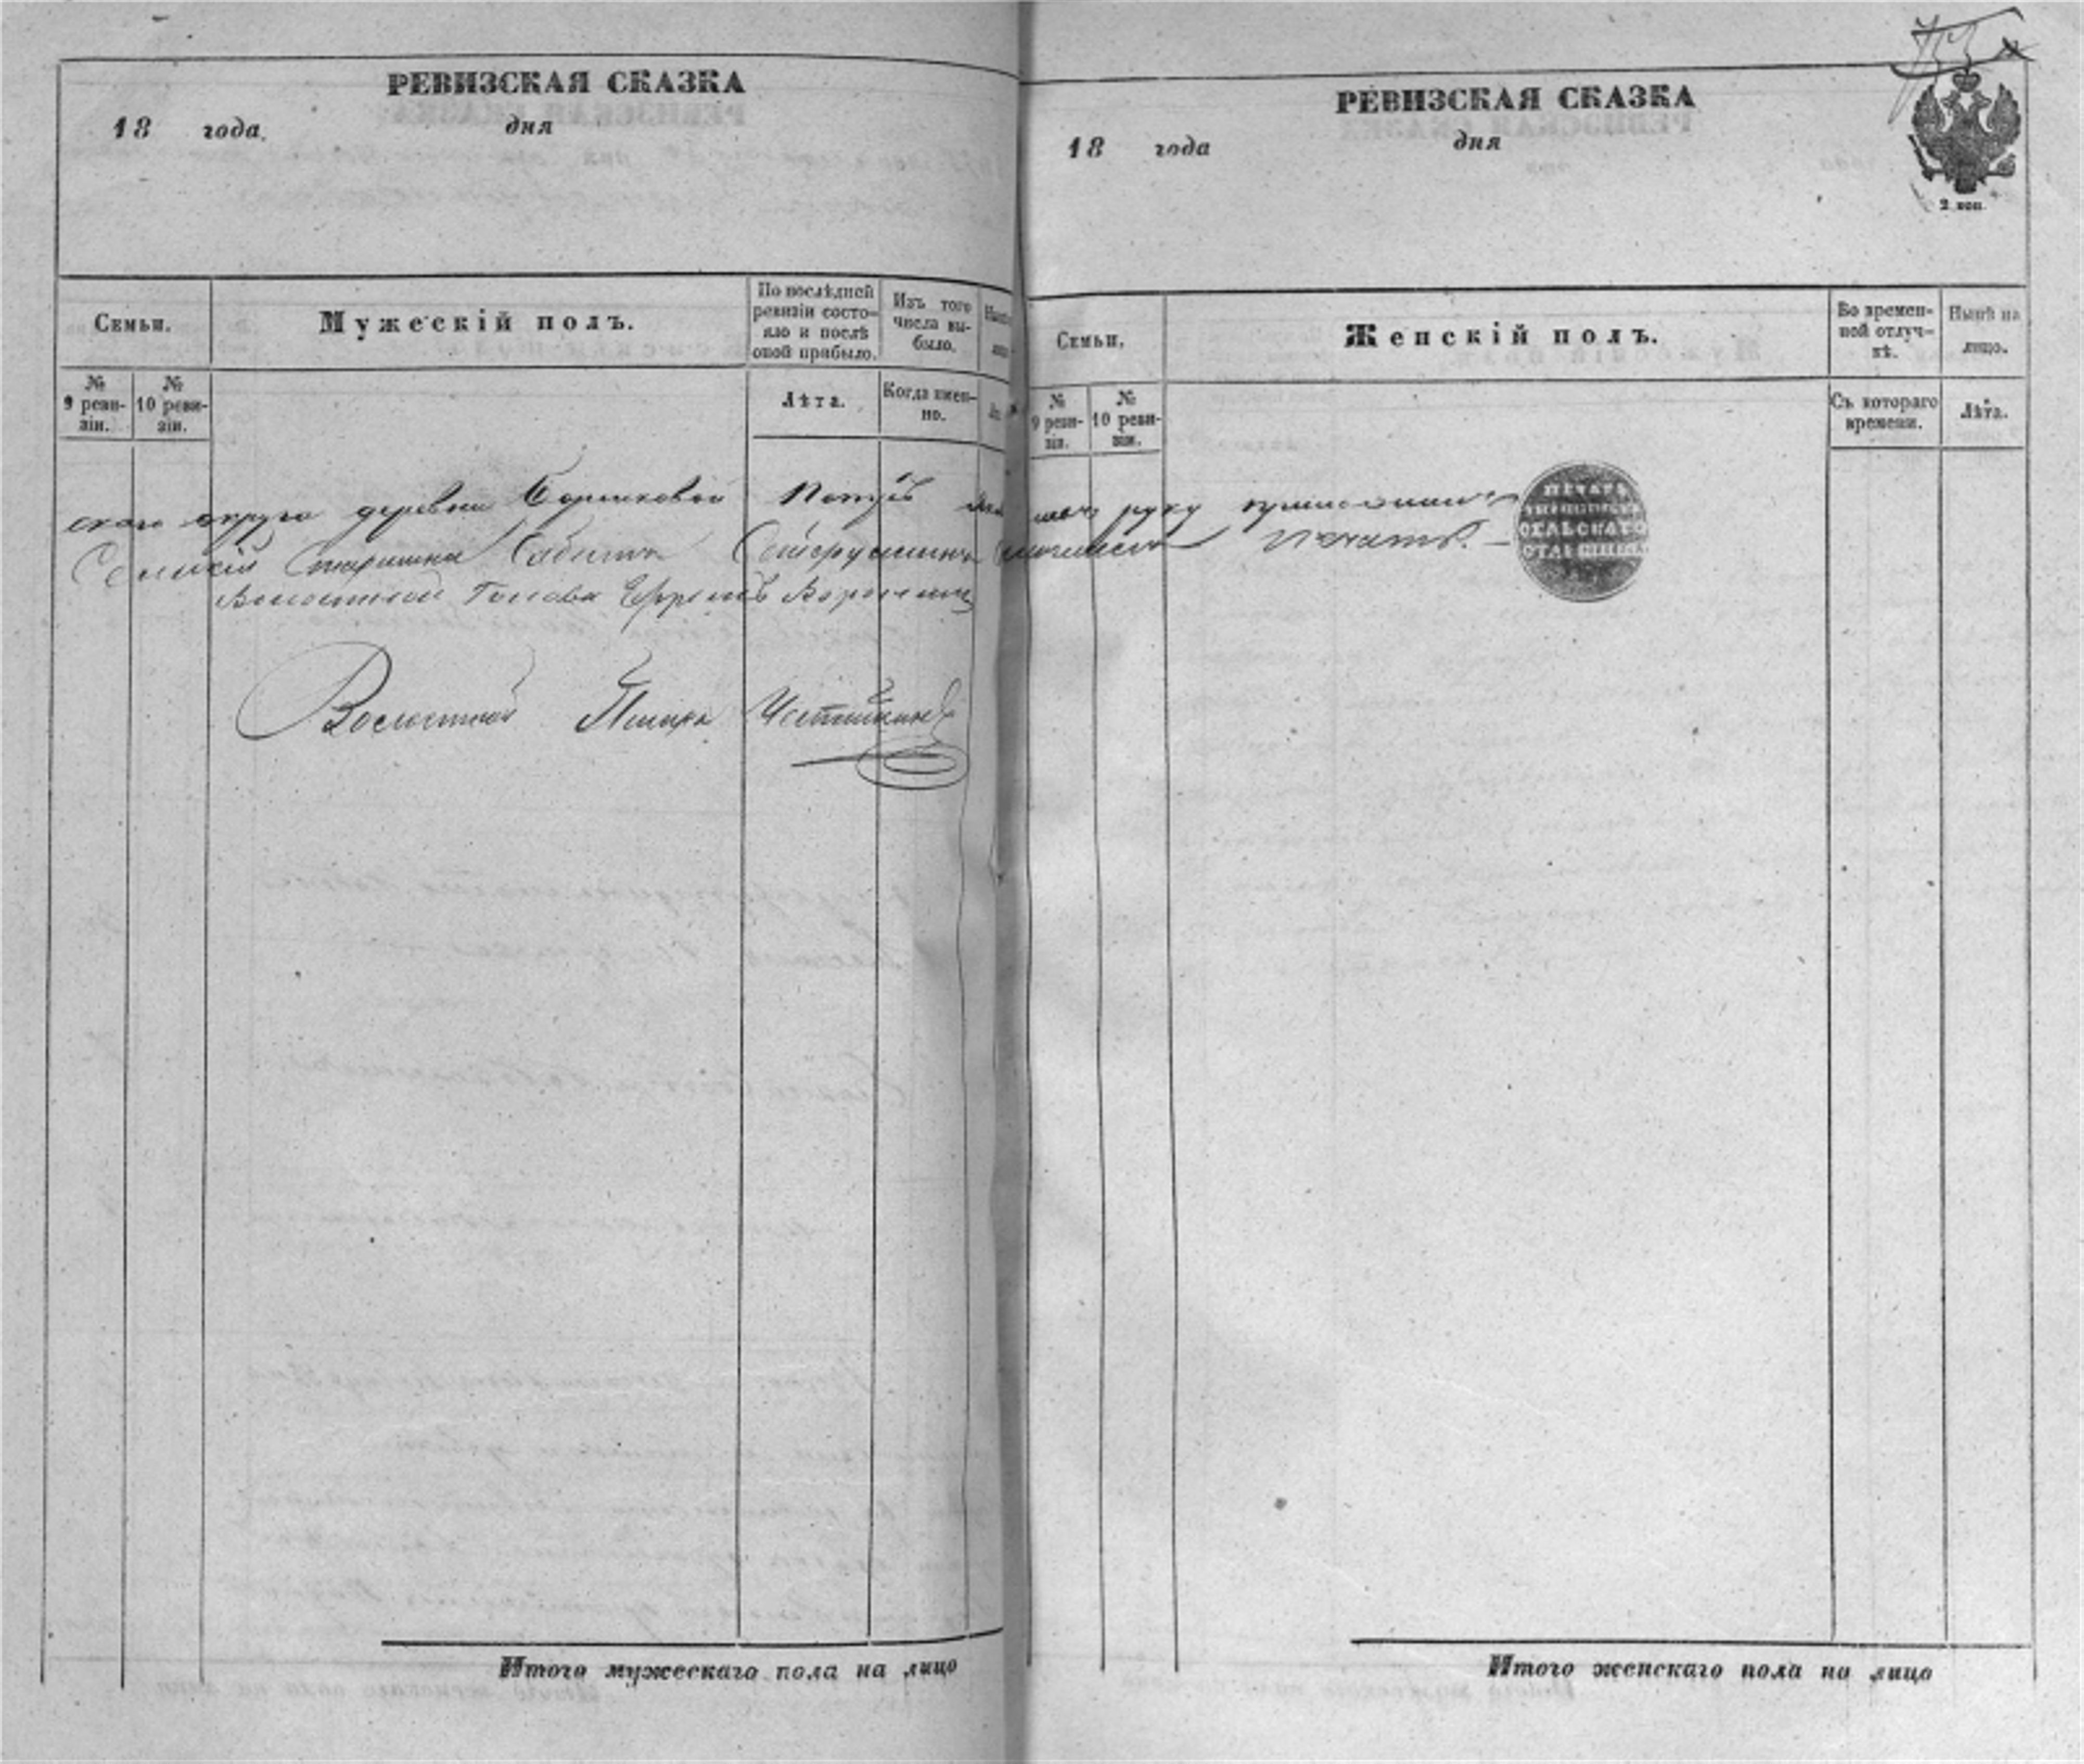 РЕВИЗСКАЯ СКАЗКА
18 года. дня
Семьи.
Мужескій полъ.
По послѣдней ревизіи состо-
яло и послѣ
оной прибыло.
Изъ того
числа вы-
было.
№
9 реви-
зіи.
№
10 реви-
зіи.
Лѣта.
Когда имен-
но.
скаго округа деревни
Сельскій Старшина
Волостной Голова Ефремъ
Волостной Писарь
Итого мужескаго пола на лицо
РЕВИЗСКАЯ СКАЗКА
18 года дня
2 коп.
Семьи.
Женскій полъ.
Во времен-
ной отлуч-
кѣ.
Нынѣ на
лицо.
№
9 реви-
зіи.
№
10 реви-
зіи.
Съ котораго
времени.
Лѣта.
руку приложилъ
печать.
ПЕЧАТЬ
СЕЛЬСКАГО
Итого женскаго пола на лицо